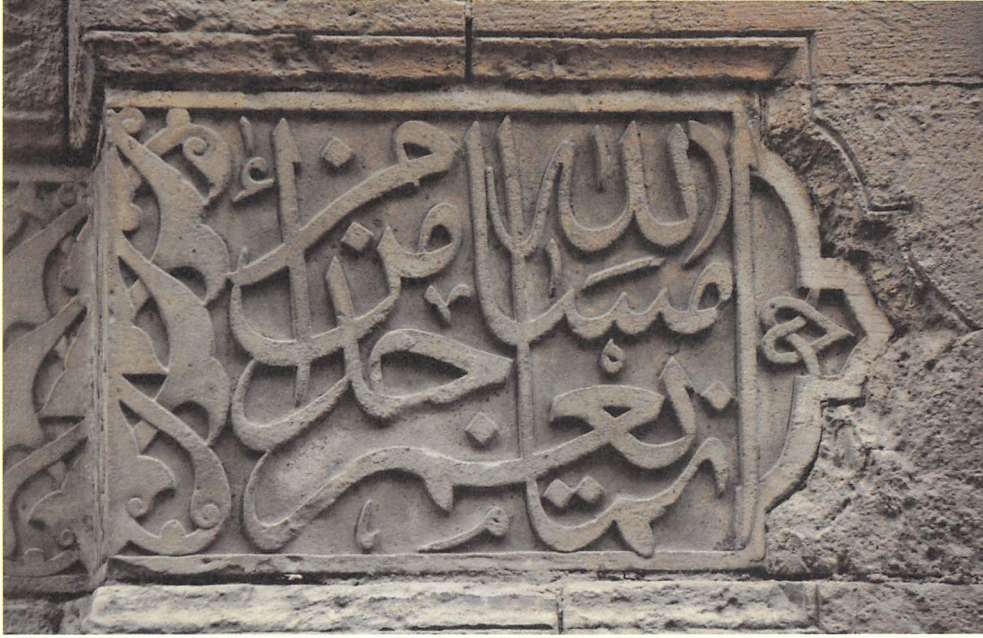 إنما يعمر مساجد الله من آمن